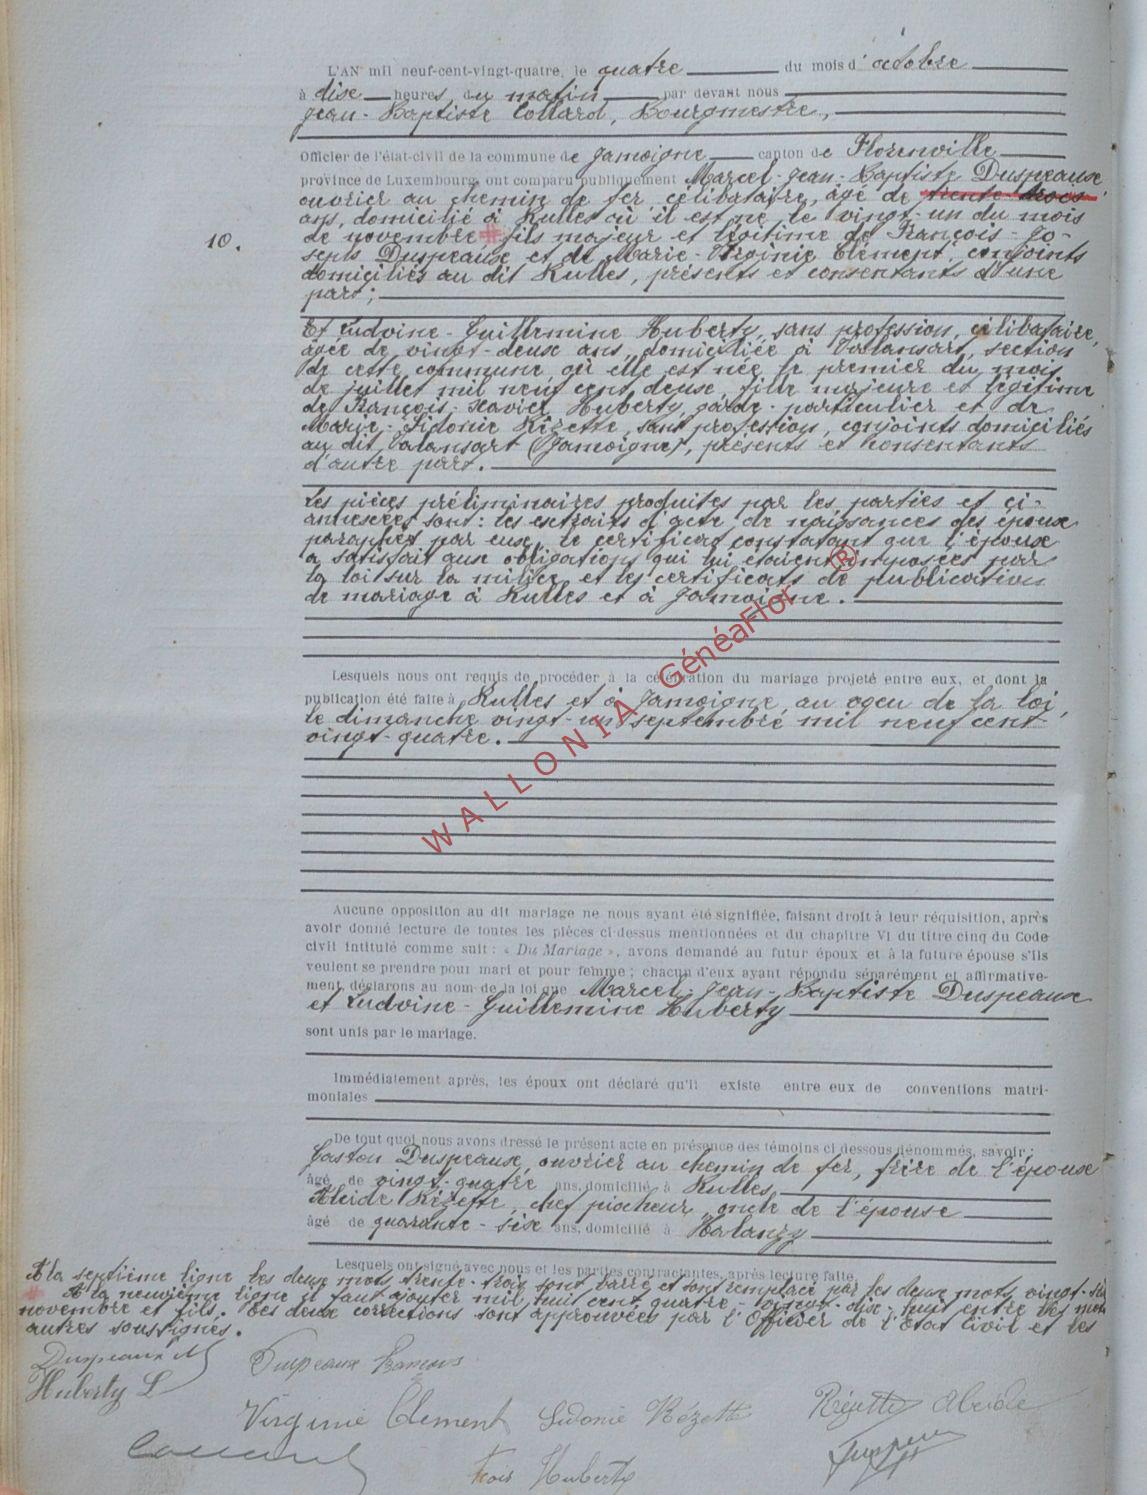 L'AN mil neuf-cent-vingt-quatre, le quatre du mois d'octobre
à dix heures du matin par devant nous
Jean-Baptiste Collard, Bourgmestre,
Officier de l'état-civil de la commune de Jamoigne canton de Florenville
province de Luxembourg, ont comparu publiquement Marcel-Jean-Baptiste Duspeaux
ouvrier au chemin de fer, célibataire, âgé de trente-trois
ans, domicilié à Rulles où il est né, le vingt-un du mois
10.
de novembre # fils majeur et légitime de François-Jo-
seph Duspeaux et de Marie-Virginie Clément, conjoints
domiciliés au dit Rulles, présents et consentants d'une
part;
Et Ludvine-Guillemine Huberty, sans profession, célibataire,
âgée de vingt-deux ans, domiciliée à Valansart, section
de cette commune où elle est née le premier du mois
de juillet mil neuf cent deux, fille majeure et légitime
de François-Xavier Huberty, garde-particulier et de
Marie-Sidonie Rézette, sans profession, conjoints domiciliés
au dit Valansart (Jamoigne), présents et consentants
d'autre part.
Les pièces préliminaires produites par les parties et ci-
annexées sont: les extraits d'acte de naissances des époux
paraphés par eux, le certificat constatant que l'époux
a satisfait aux obligations qui lui étaient imposées par
la loi sur la milice et les certificats de publication
de mariage à Rulles et à Jamoigne.
Lesquels nous ont requis de procéder à la célébration du mariage projeté entre eux, et dont la
publication été faite à Rulles et à Jamoigne, au vœu de la loi,
le dimanche vingt-un septembre mil neuf cent
vingt-quatre.
WALLONIA GénéaFlor ®
Aucune opposition au dit mariage ne nous ayant été signifiée, faisant droit à leur réquisition, après
avoir donné lecture de toutes les pièces ci-dessus mentionnées et du chapitre VI du titre cinq du Code
civil intitulé comme suit : « Du Mariage », avons demandé au futur époux et à la future épouse s'ils
veulent se prendre pour mari et pour femme ; chacun d'eux ayant répondu séparément et affirmative-
ment, déclarons au nom de la loi que Marcel-Jean-Baptiste Duspeaux
et Ludvine-Guillemine Huberty
sont unis par le mariage.
Immédiatement après, les époux ont déclaré qu'il existe entre eux de conventions matri-
moniales
De tout quoi nous avons dressé le présent acte en présence des témoins ci dessous dénommés, savoir:
Gaston Duspeaux, ouvrier au chemin de fer, frère de l'époux
âgé de vingt-quatre ans, domicilié à Rulles,
Alcide Rézette, chef piocheur, oncle de l'épouse
âgé de quarante-six ans, domicilié à Halanzy
Lesquels ont signé avec nous et les parties contractantes, après lecture faite.
A la septième ligne les deux mots trente-trois sont barré et sont remplacé par les deux mots vingt-six
# A la neuvième ligne il faut ajouter mil huit cent quatre-vingt-dix-huit entre les mots
novembre et fils. Ces deux corrections sont approuvées par l'Officier de l'Etat Civil et les
autres soussignés.
Duspeaux M
Duspeaux François
Huberty L
Virginie Clement Sidonie Rézette Rézette Alcide
Collard
Duspeaux
Frois Huberty